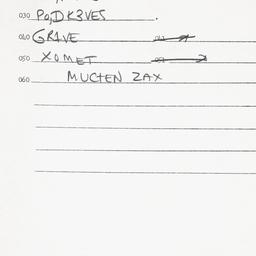 030 Po,DK3VES .
040 GR1VE
050 XOMET
060 MUCTEN ZAX